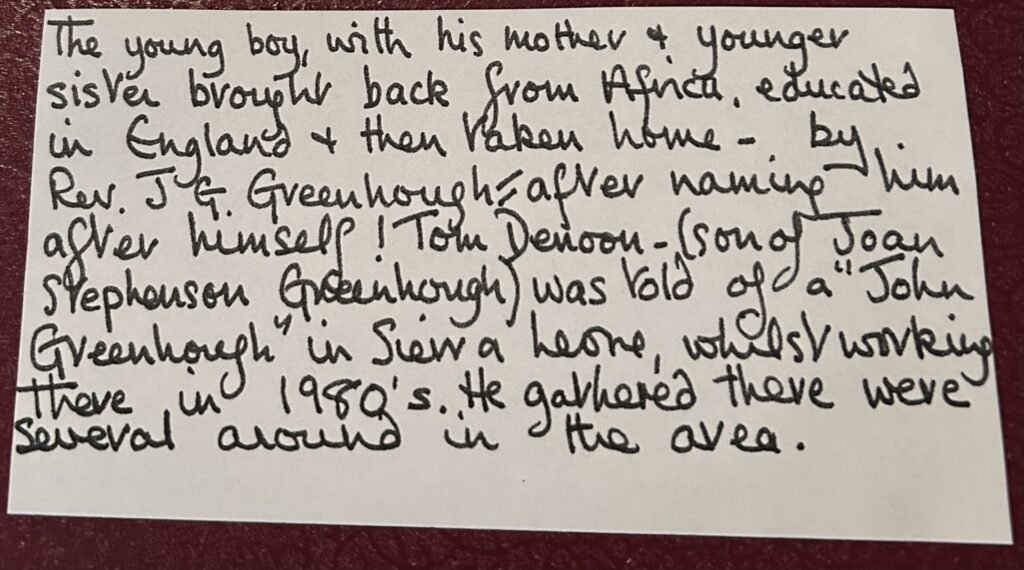 The young boy, with his mother & younger
sister brought back from Africa, educated
in England & then taken home - by
Rev. J G. Greenhough - after naming him
after himself! Tom Denoon - (son of Joan
Stephenson Greenhough) was told of a "John
Greenhough" in Sierra Leone, whilst working
there in 1980's. He gathered there were
several around in the area.